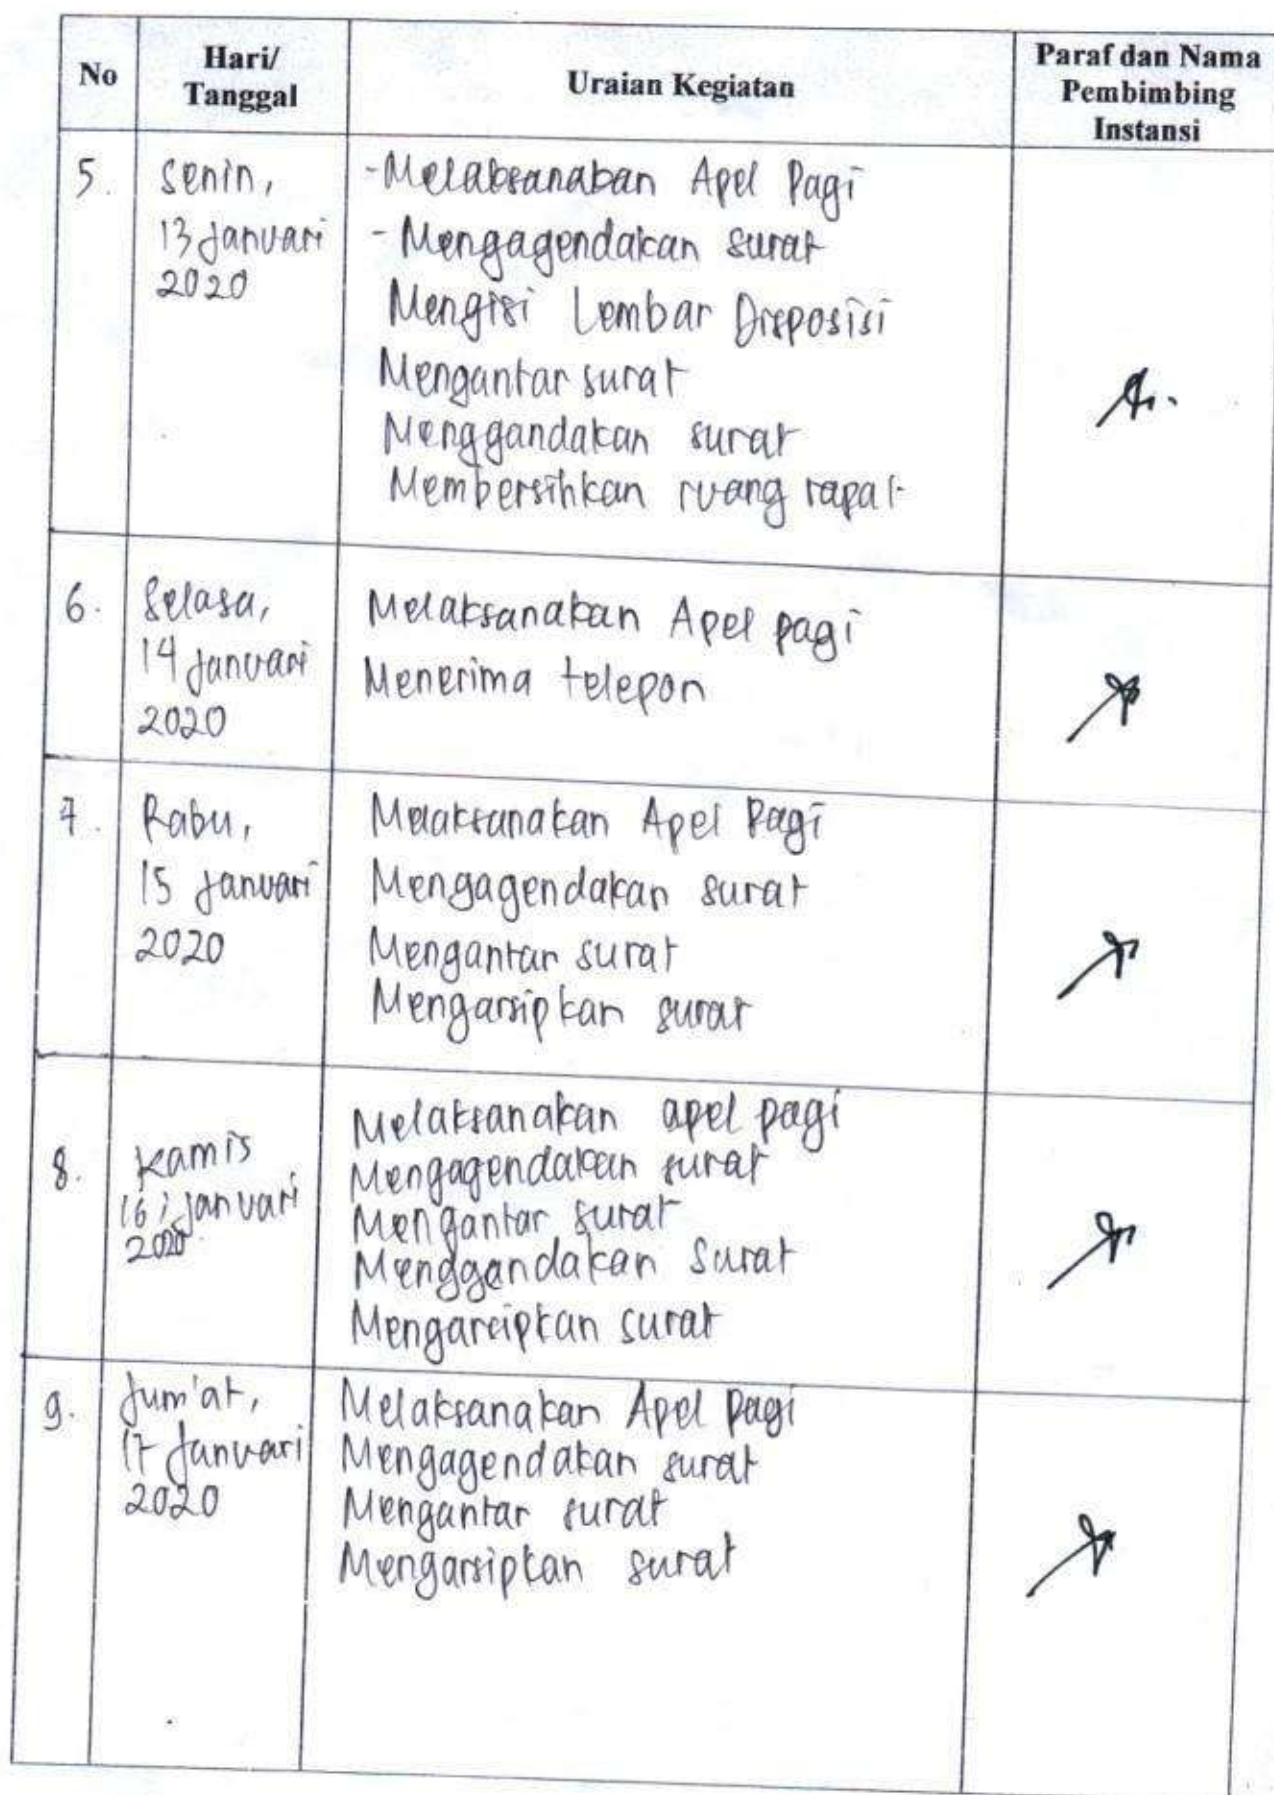 No
Hari/
Tanggal
Uraian Kegiatan
Paraf dan Nama
Pembimbing
Instansi
5.
Senin,
13 Januari
2020
- Melaksanakan Apel Pagi
- Mengagendakan surat
Mengisi Lembar Disposisi
Mengantar surat
Menggandakan surat
Membersihkan ruang rapat
6.
Selasa,
14 Januari
2020
Melaksanakan Apel pagi
Menerima telepon
7.
Rabu,
15 Januari
2020
Melaksanakan Apel Pagi
Mengagendakan surat
Mengantar surat
Mengarsipkan surat
8.
Kamis
16, Januari
2020
Melaksanakan apel pagi
Mengagendakan surat
Mengantar surat
Menggandakan surat
Mengarsipkan surat
9.
Jum'at,
17 Januari
2020
Melaksanakan Apel Pagi
Mengagendakan surat
Mengantar surat
Mengarsipkan surat